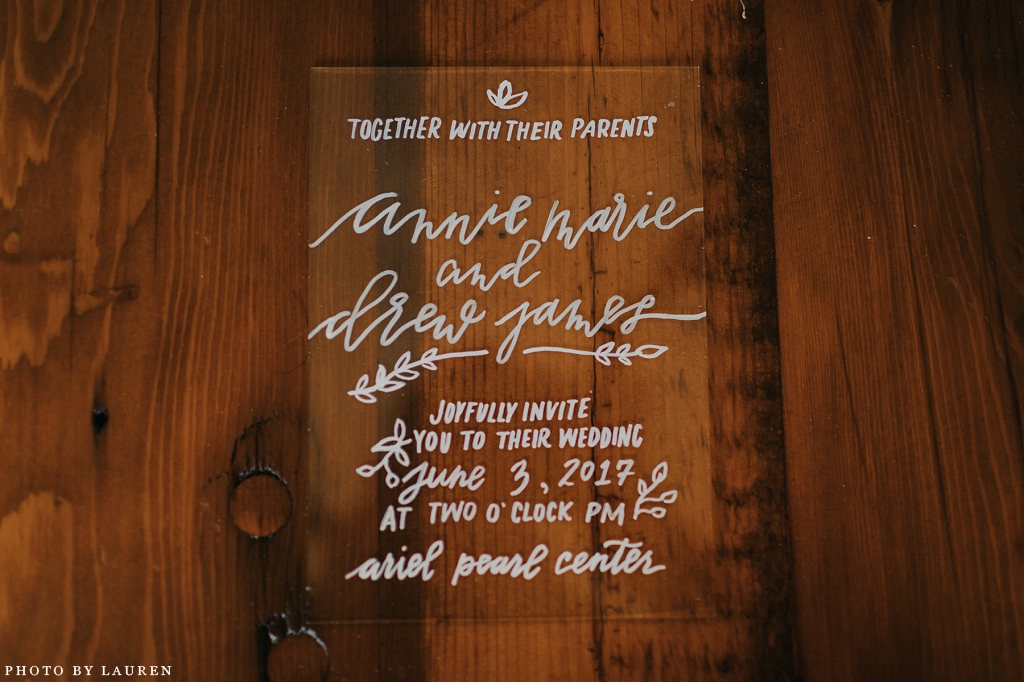 TOGETHER WITH THEIR PARENTS
annie marie
and
drew james
JOYFULLY INVITE
YOU TO THEIR WEDDING
june 3, 2017
AT TWO O'CLOCK PM
ariel pearl center
PHOTO BY LAUREN